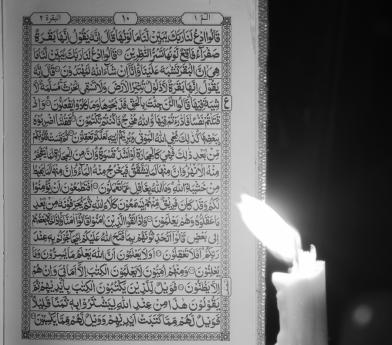 البقرة ٢ ١٠ الٓمّٓ ١
قَالُوا ادْعُ لَنَا رَبَّكَ يُبَيِّنْ لَّنَا مَا لَوْنُهَا قَالَ اِنَّهٗ يَقُوْلُ اِنَّهَا بَقَرَةٌ
صَفْرَآءُ فَاقِعٌ لَّوْنُهَا تَسُرُّ النّٰظِرِيْنَ قَالُوا ادْعُ لَنَا رَبَّكَ يُبَيِّنْ لَّنَا مَا
هِيَ اِنَّ الْبَقَرَ تَشٰبَهَ عَلَيْنَا وَاِنَّآ اِنْ شَآءَ اللّٰهُ لَمُهْتَدُوْنَ قَالَ اِنَّهٗ
يَقُوْلُ اِنَّهَا بَقَرَةٌ لَّا ذَلُوْلٌ تُثِيْرُ الْاَرْضَ وَلَا تَسْقِي الْحَرْثَ مُسَلَّمَةٌ لَّا
شِيَةَ فِيْهَا قَالُوا الْـٰٔنَ جِئْتَ بِالْحَقِّ فَذَبَحُوْهَا وَمَا كَادُوْا يَفْعَلُوْنَ وَاِذْ
قَتَلْتُمْ نَفْسًا فَادّٰرَءْتُمْ فِيْهَا وَاللّٰهُ مُخْرِجٌ مَّا كُنْتُمْ تَكْتُمُوْنَ فَقُلْنَا اضْرِبُوْهُ
بِبَعْضِهَا كَذٰلِكَ يُحْيِ اللّٰهُ الْمَوْتٰى وَيُرِيْكُمْ اٰيٰتِهٖ لَعَلَّكُمْ تَعْقِلُوْنَ ثُمَّ قَسَتْ قُلُوْبُكُمْ
مِّنْ بَعْدِ ذٰلِكَ فَهِيَ كَالْحِجَارَةِ اَوْ اَشَدُّ قَسْوَةً وَاِنَّ مِنَ الْحِجَارَةِ لَمَا يَتَفَجَّرُ
مِنْهُ الْاَنْهٰرُ وَاِنَّ مِنْهَا لَمَا يَشَّقَّقُ فَيَخْرُجُ مِنْهُ الْمَآءُ وَاِنَّ مِنْهَا لَمَا يَهْبِطُ
مِنْ خَشْيَةِ اللّٰهِ وَمَا اللّٰهُ بِغَافِلٍ عَمَّا تَعْمَلُوْنَ اَفَتَطْمَعُوْنَ اَنْ يُّؤْمِنُوْا
لَكُمْ وَقَدْ كَانَ فَرِيْقٌ مِّنْهُمْ يَسْمَعُوْنَ كَلٰمَ اللّٰهِ ثُمَّ يُحَرِّفُوْنَهٗ مِنْ بَعْدِ
مَا عَقَلُوْهُ وَهُمْ يَعْلَمُوْنَ وَاِذَا لَقُوا الَّذِيْنَ اٰمَنُوْا قَالُوْٓا اٰمَنَّا وَاِذَا خَلَا بَعْضُهُمْ
اِلٰى بَعْضٍ قَالُوْٓا اَتُحَدِّثُوْنَهُمْ بِمَا فَتَحَ اللّٰهُ عَلَيْكُمْ لِيُحَآجُّوْكُمْ بِهٖ عِنْدَ
رَبِّكُمْ اَفَلَا تَعْقِلُوْنَ اَوَلَا يَعْلَمُوْنَ اَنَّ اللّٰهَ يَعْلَمُ مَا يُسِرُّوْنَ وَمَا
يُعْلِنُوْنَ وَمِنْهُمْ اُمِّيُّوْنَ لَا يَعْلَمُوْنَ الْكِتٰبَ اِلَّآ اَمَانِيَّ وَاِنْ هُمْ
اِلَّا يَظُنُّوْنَ فَوَيْلٌ لِّلَّذِيْنَ يَكْتُبُوْنَ الْكِتٰبَ بِاَيْدِيْهِمْ ثُمَّ
يَقُوْلُوْنَ هٰذَا مِنْ عِنْدِ اللّٰهِ لِيَشْتَرُوْا بِهٖ ثَمَنًا قَلِيْلًا
فَوَيْلٌ لَّهُمْ مِّمَّا كَتَبَتْ اَيْدِيْهِمْ وَوَيْلٌ لَّهُمْ مِّمَّا يَكْسِبُوْنَ